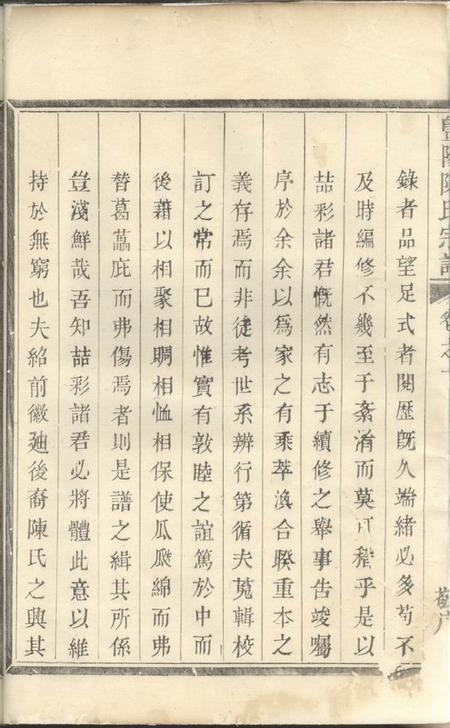 豐陽陳氏宗譜 卷之一
錄者品望足式者閱歷旣久端緒必多苟不
及時編修不幾至于紊淆而莫可稽乎是以
喆彩諸君慨然有志于續修之舉事告竣囑
序於余余以爲家之有乘萃渙合睽重本之
義存焉而非徒考世系辨行第循夫蒐輯校
訂之常而已故惟實有敦睦之誼篤於中而
後藉以相聚相賙相恤相保使瓜瓞綿而弗
替葛藟庇而弗傷焉者則是譜之緝其所係
豈淺鮮哉吾知喆彩諸君必將體此意以維
持於無窮也夫紹前徽廸後裔陳氏之興其